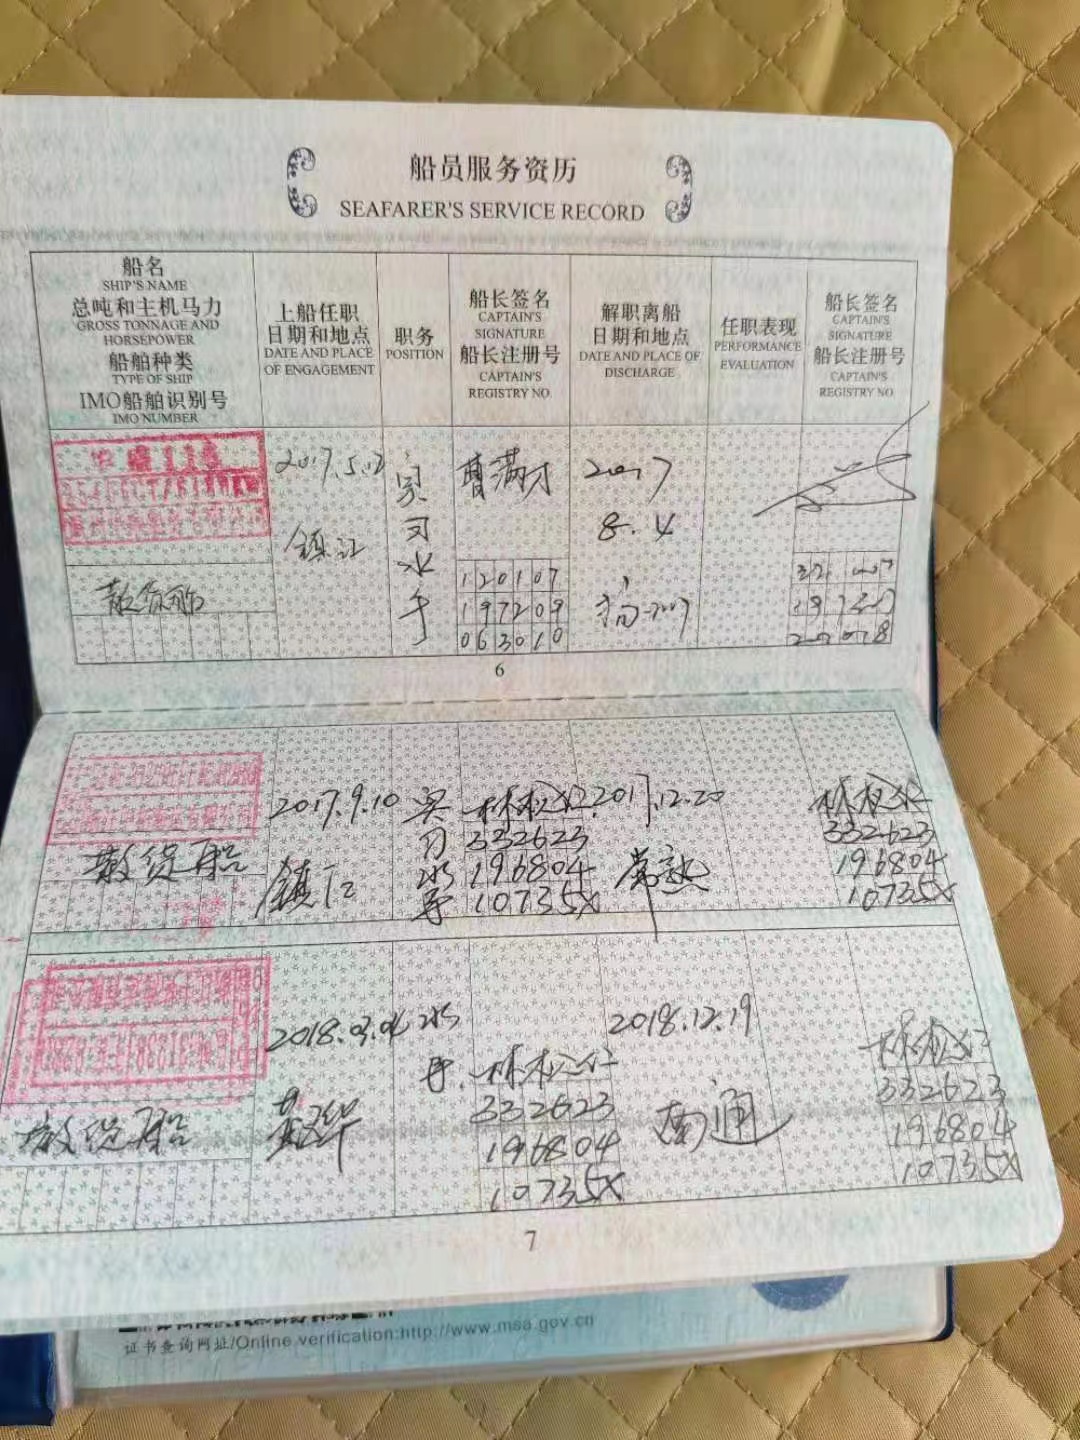 船员服务资历
SEAFARER'S SERVICE RECORD
船名
SHIP'S NAME
总吨和主机马力
GROSS TONNAGE AND
HORSEPOWER
船舶种类
TYPE OF SHIP
IMO船舶识别号
IMO NUMBER
上船任职
日期和地点
DATE AND PLACE
OF ENGAGEMENT
职务
POSITION
船长签名
CAPTAIN'S
SIGNATURE
船长注册号
CAPTAIN'S
REGISTRY NO
解职离船
日期和地点
DATE AND PLACE OF
DISCHARGE
任职表现
PERFORMANCE
EVALUATION
船长签名
CAPTAIN'S
SIGNATURE
船长注册号
CAPTAIN'S
REGISTRY NO
散货船
2017.5.12
镇江
实习水手
曹满才
120107
197209
063010
2017
8.4
6
散货船
2017.9.10
镇江
实习水手
332623
196804
10735X
2017.12.20
常熟
332623
196804
10735X
散货船
2018.03.06
黄骅
水手
332623
196804
10735X
2018.12.19
南通
332623
196804
10735X
7
证书查询网址/Online verification:http://www.msa.gov.cn